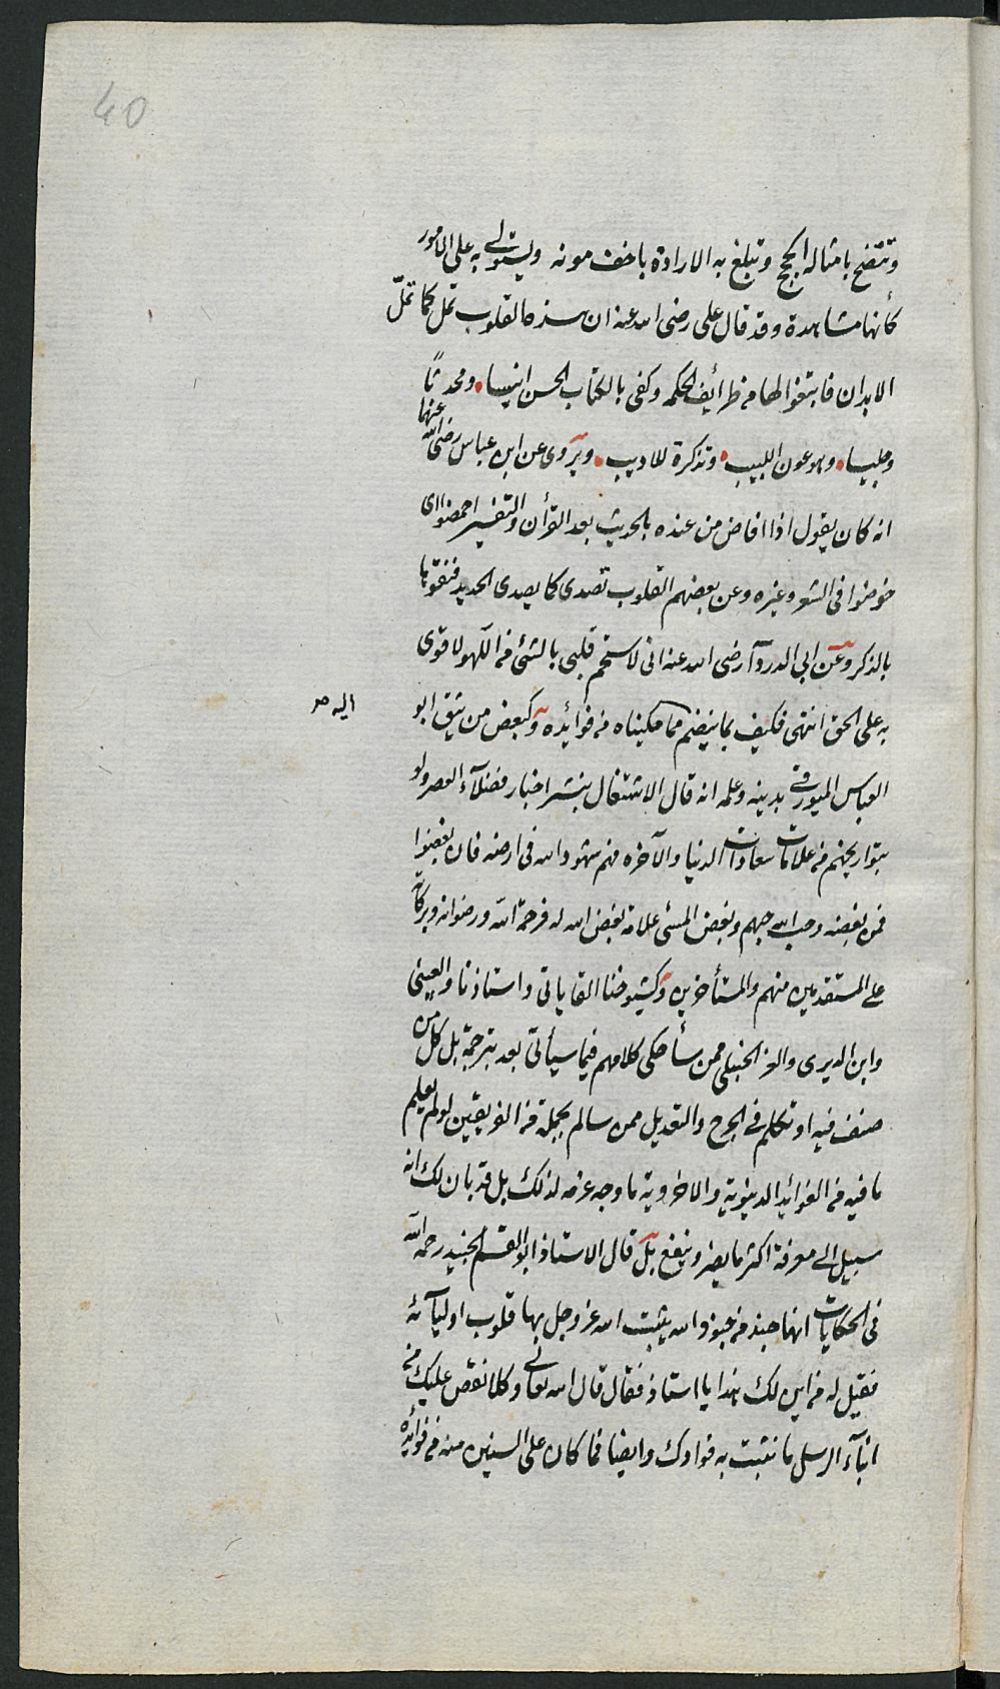 40
وتتضح بامثاله الحجج وتبلغ به الارادة باخف مونه ويستولى به على الامور
كأنها مشاهدة وقد قال على رضى الله عنه ان هذه القلوب تمل كما تملّ
الابدان فابتغوا لها من طرائف الحكمه وكفى بالكتاب الحسن انيسا ومحدثًا
وجليسا وهو عون اللبيب وتذكرة للاديب ويروى عن ابن عباس رضى الله عنهما
انه كان يقول اذا افاض من عنده بالحديث بعد القرأن والتفسير احمضوا اى
خوضوا فى الشعر وغيره وعن بعضهم القلوب تصدى كما يصدى الحديد فنقوها
بالذكر وعن ابى الدردآ رضى الله عنه انى لاستجم قلبى بالشئ من اللهو لاقوى
به على الحق انتهى فكيف بما ينضم مما حكيناه من فوائده وكبعض من يثق ابو
اليه صح
العباس الميورقى بدينه وعلمه انه قال الاشتغال بنشر اخبار فضلآء العصر ولو
بتواريخهم من علامات سعادات الدنيا والآخره فهم شهود الله فى ارضه فان بغضوا
فمن بغضه وحب الله حبهم وبغض المسئ علامة بغض الله له فرحمة الله ورضوانه وبركاته
على المتقدمين منهم والمتأخرين وكشيوخنا القاياتى واستاذنا والعينى
وابن الديرى والعز الحنبلى ممن سأحكى كلامهم فيما سيأتى بعد بترجمة بل كل من
صنف فيه او تكلم فى الجرح والتعديل ممن سالم بجملة من الفريقين لو لم يعلم
ما فيه من الفوائد الدينوية والاخروية ما وجه عزمه لذلك بل قد بان لك انه
سبيل الى معرفة اكثر ما يضر وينفع بل قال الاستاذ ابو القسم الجنيد رحمه الله
فى الحكايات انها جند من جنود الله يثبت الله عز وجل بها قلوب اوليآئه
فقيل له من اين لك هذا يا استاذ فقال قال الله تعالى وكلا نقص عليك من
انبآء الرسل ما نثبت به فوادك وايضا فما كان على السنين منه من فوائده